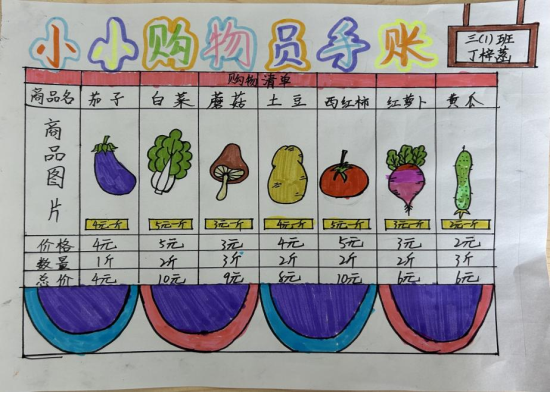 小小购物员手账
三(1)班
丁梓
购物清单
商品名 茄子 白菜 蘑菇 土豆 西红柿 红萝卜 黄瓜
商品图片
4元一斤 5元一斤 3元一斤 4元一斤 5元一斤 3元一斤 2元一斤
价格 4元 5元 3元 4元 5元 3元 2元
数量 1斤 2斤 3斤 2斤 2斤 2斤 3斤
总价 4元 10元 9元 8元 10元 6元 6元